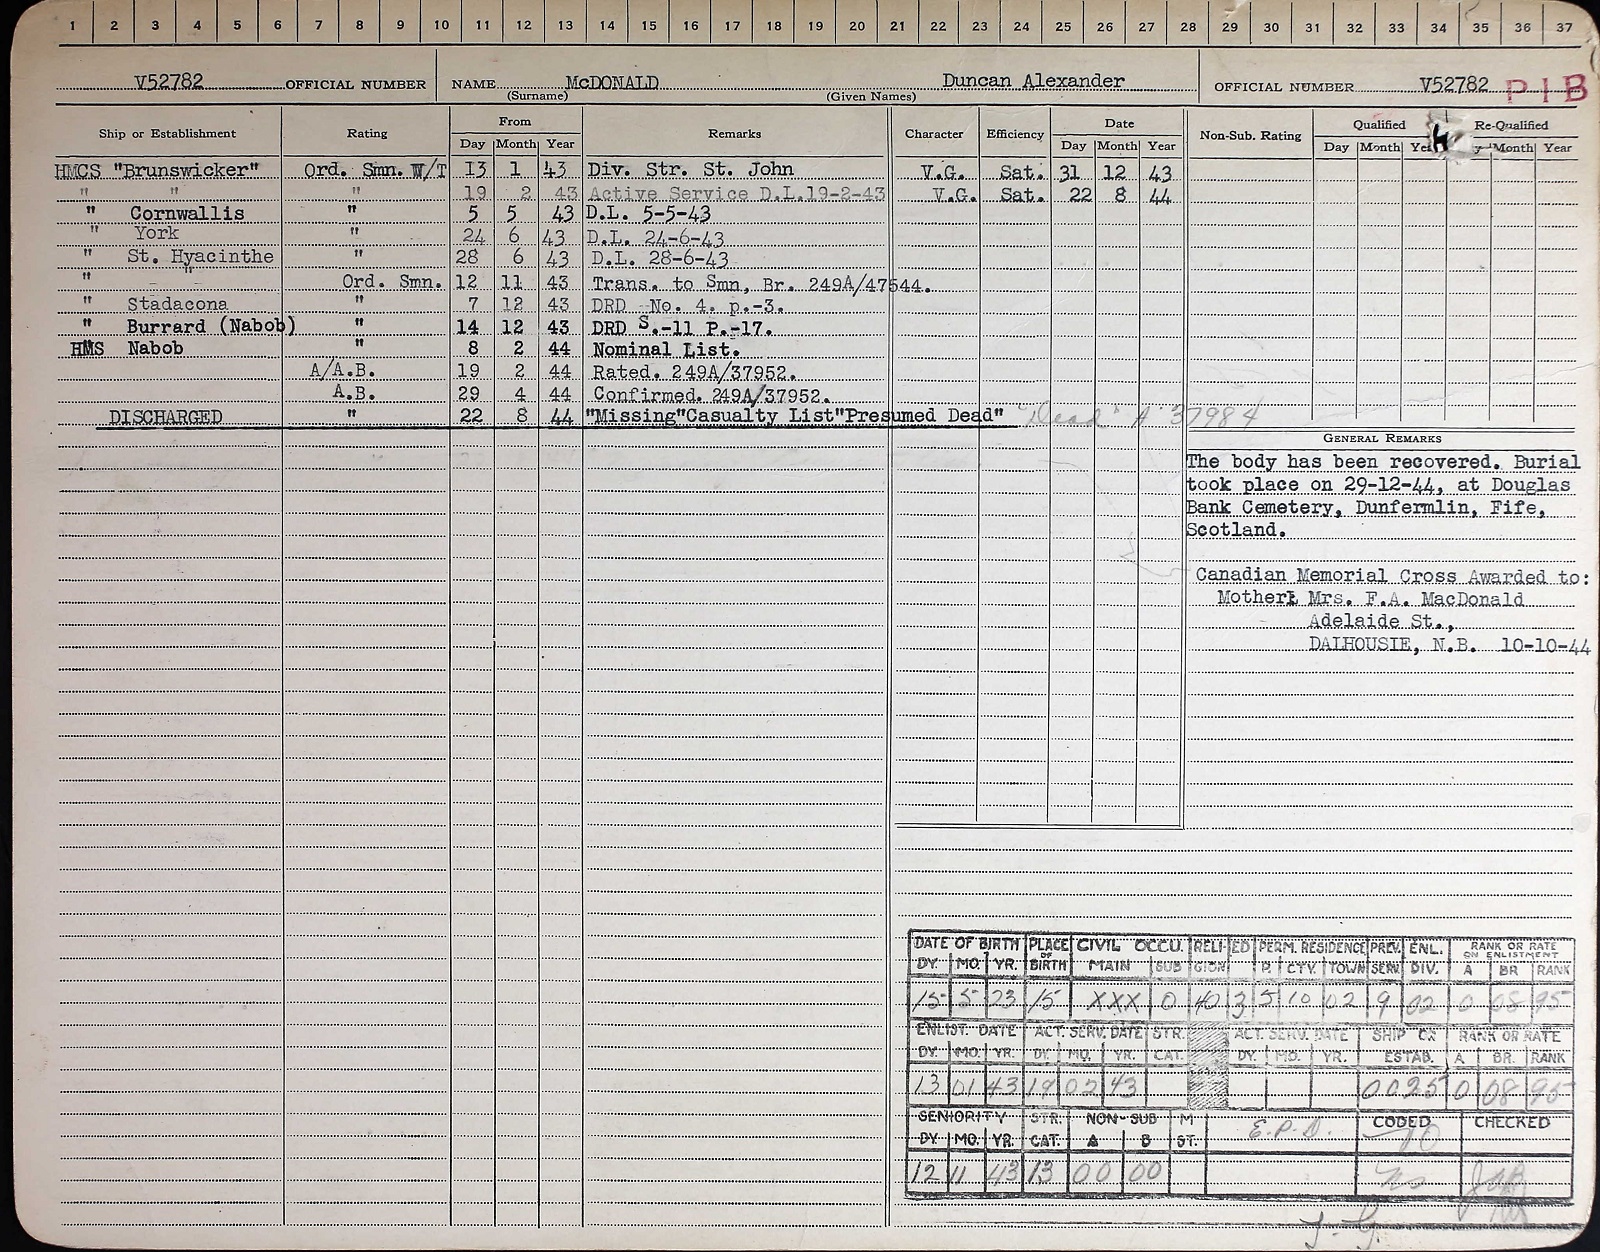 1 2 3 4 5 6 7 8 9 10 11 12 13 14 15 16 17 18 19 20 21 22 23 24 25 26 27 28 29 30 31 32 33 34 35 36 37
V52782 OFFICIAL NUMBER NAME McDONALD Duncan Alexander OFFICIAL NUMBER V52782 PIB
(Surname) (Given Names)
Ship or Establishment Rating From Remarks Character Efficiency Date Non-Sub. Rating Qualified Re-Qualified
Day Month Year Day Month Year Day Month Month Year
HMCS "Brunswicker" Ord. Smn. W/T 13 1 43 Div. Str. St. John V.G. Sat. 31 12 43
" " " 19 2 43 Active Service D.L.19-2-43 V.G. Sat. 22 8 44
" Cornwallis " 5 5 43 D.L. 5-5-43
" York " 24 6 43 D.L. 24-6-43
" St. Hyacinthe " 28 6 43 D.L. 28-6-43
" - " - Ord. Smn. 12 11 43 Trans. to Smn, Br. 249A/47544.
" Stadacona " 7 12 43 DRD No. 4. p.-3.
" Burrard (Nabob) " 14 12 43 DRD S.-11 P.-17.
HMS Nabob " 8 2 44 Nominal List.
A/A.B. 19 2 44 Rated. 249A/37952.
A.B. 29 4 44 Confirmed. 249A/37952.
DISCHARGED " 22 8 44 "Missing"Casualty List"Presumed Dead" "Dead" A 37984
GENERAL REMARKS
The body has been recovered. Burial
took place on 29-12-44, at Douglas
Bank Cemetery, Dunfermlin, Fife,
Scotland.
Canadian Memorial Cross Awarded to:
Mother: Mrs. F.A. MacDonald
Adelaide St.,
DALHOUSIE, N.B. 10-10-44
DATE OF BIRTH PLACE OF BIRTH CIVIL OCCU. RELIGION ED PERM. RESIDENCE PREV. SERV. ENL. DIV. RANK OR RATE ON ENLISTMENT
DY. MO. YR. MAIN SUB P. CTY. TOWN A BR RANK
15 5 23 15 XXX 0 40 3 5 10 02 9 02 0 08 95
ENLIST. DATE ACT. SERV. DATE STR. ACT. SERV. DATE SHIP OR RANK OR RATE
DY. MO. YR. DY. MO. YR. CAT. DY. MO. YR. ESTAB. A BR. RANK
13 01 43 19 02 43 0025 0 08 95
SENIORITY STR. NON-SUB M E.P.D. CODED CHECKED
DY. MO. YR. CAT. A B ST.
12 11 43 13 00 00